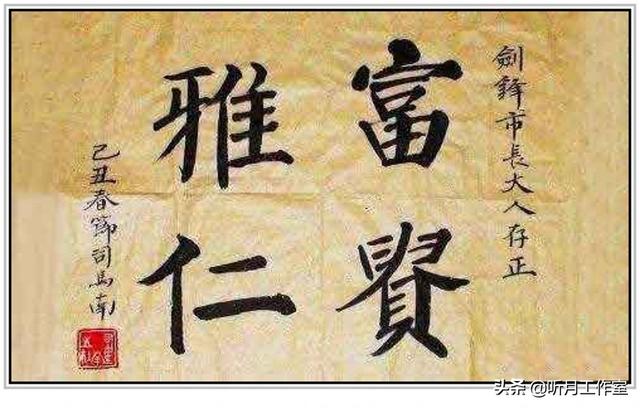 劍鋒市長大人存正
富賢
雅仁
己丑春節司馬南
头条 @听月工作室